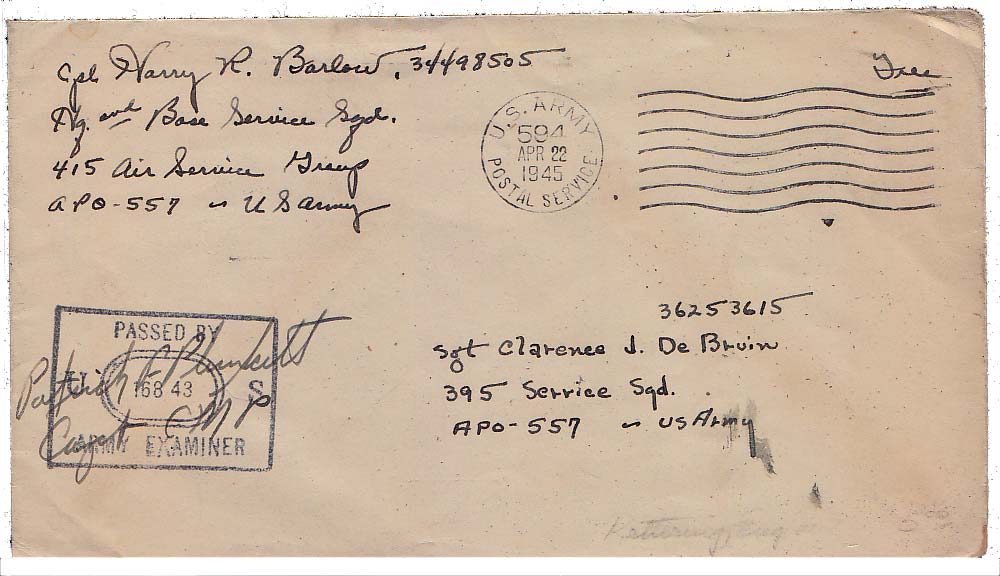 Cpl Harry R. Barlow, 34498505
Hq. and Base Service Sqd.
415 Air Service Group
APO-557 ~ US Army
Free
U.S. ARMY
594
APR 22
1945
POSTAL SERVICE
PASSED BY
U 16843 S
ARMY EXAMINER
Patrick F Plunkett
Capt CMP
36253615
Sgt Clarence J. De Bruin
395 Service Sqd.
APO-557 ~ US Army
Kettering, Eng